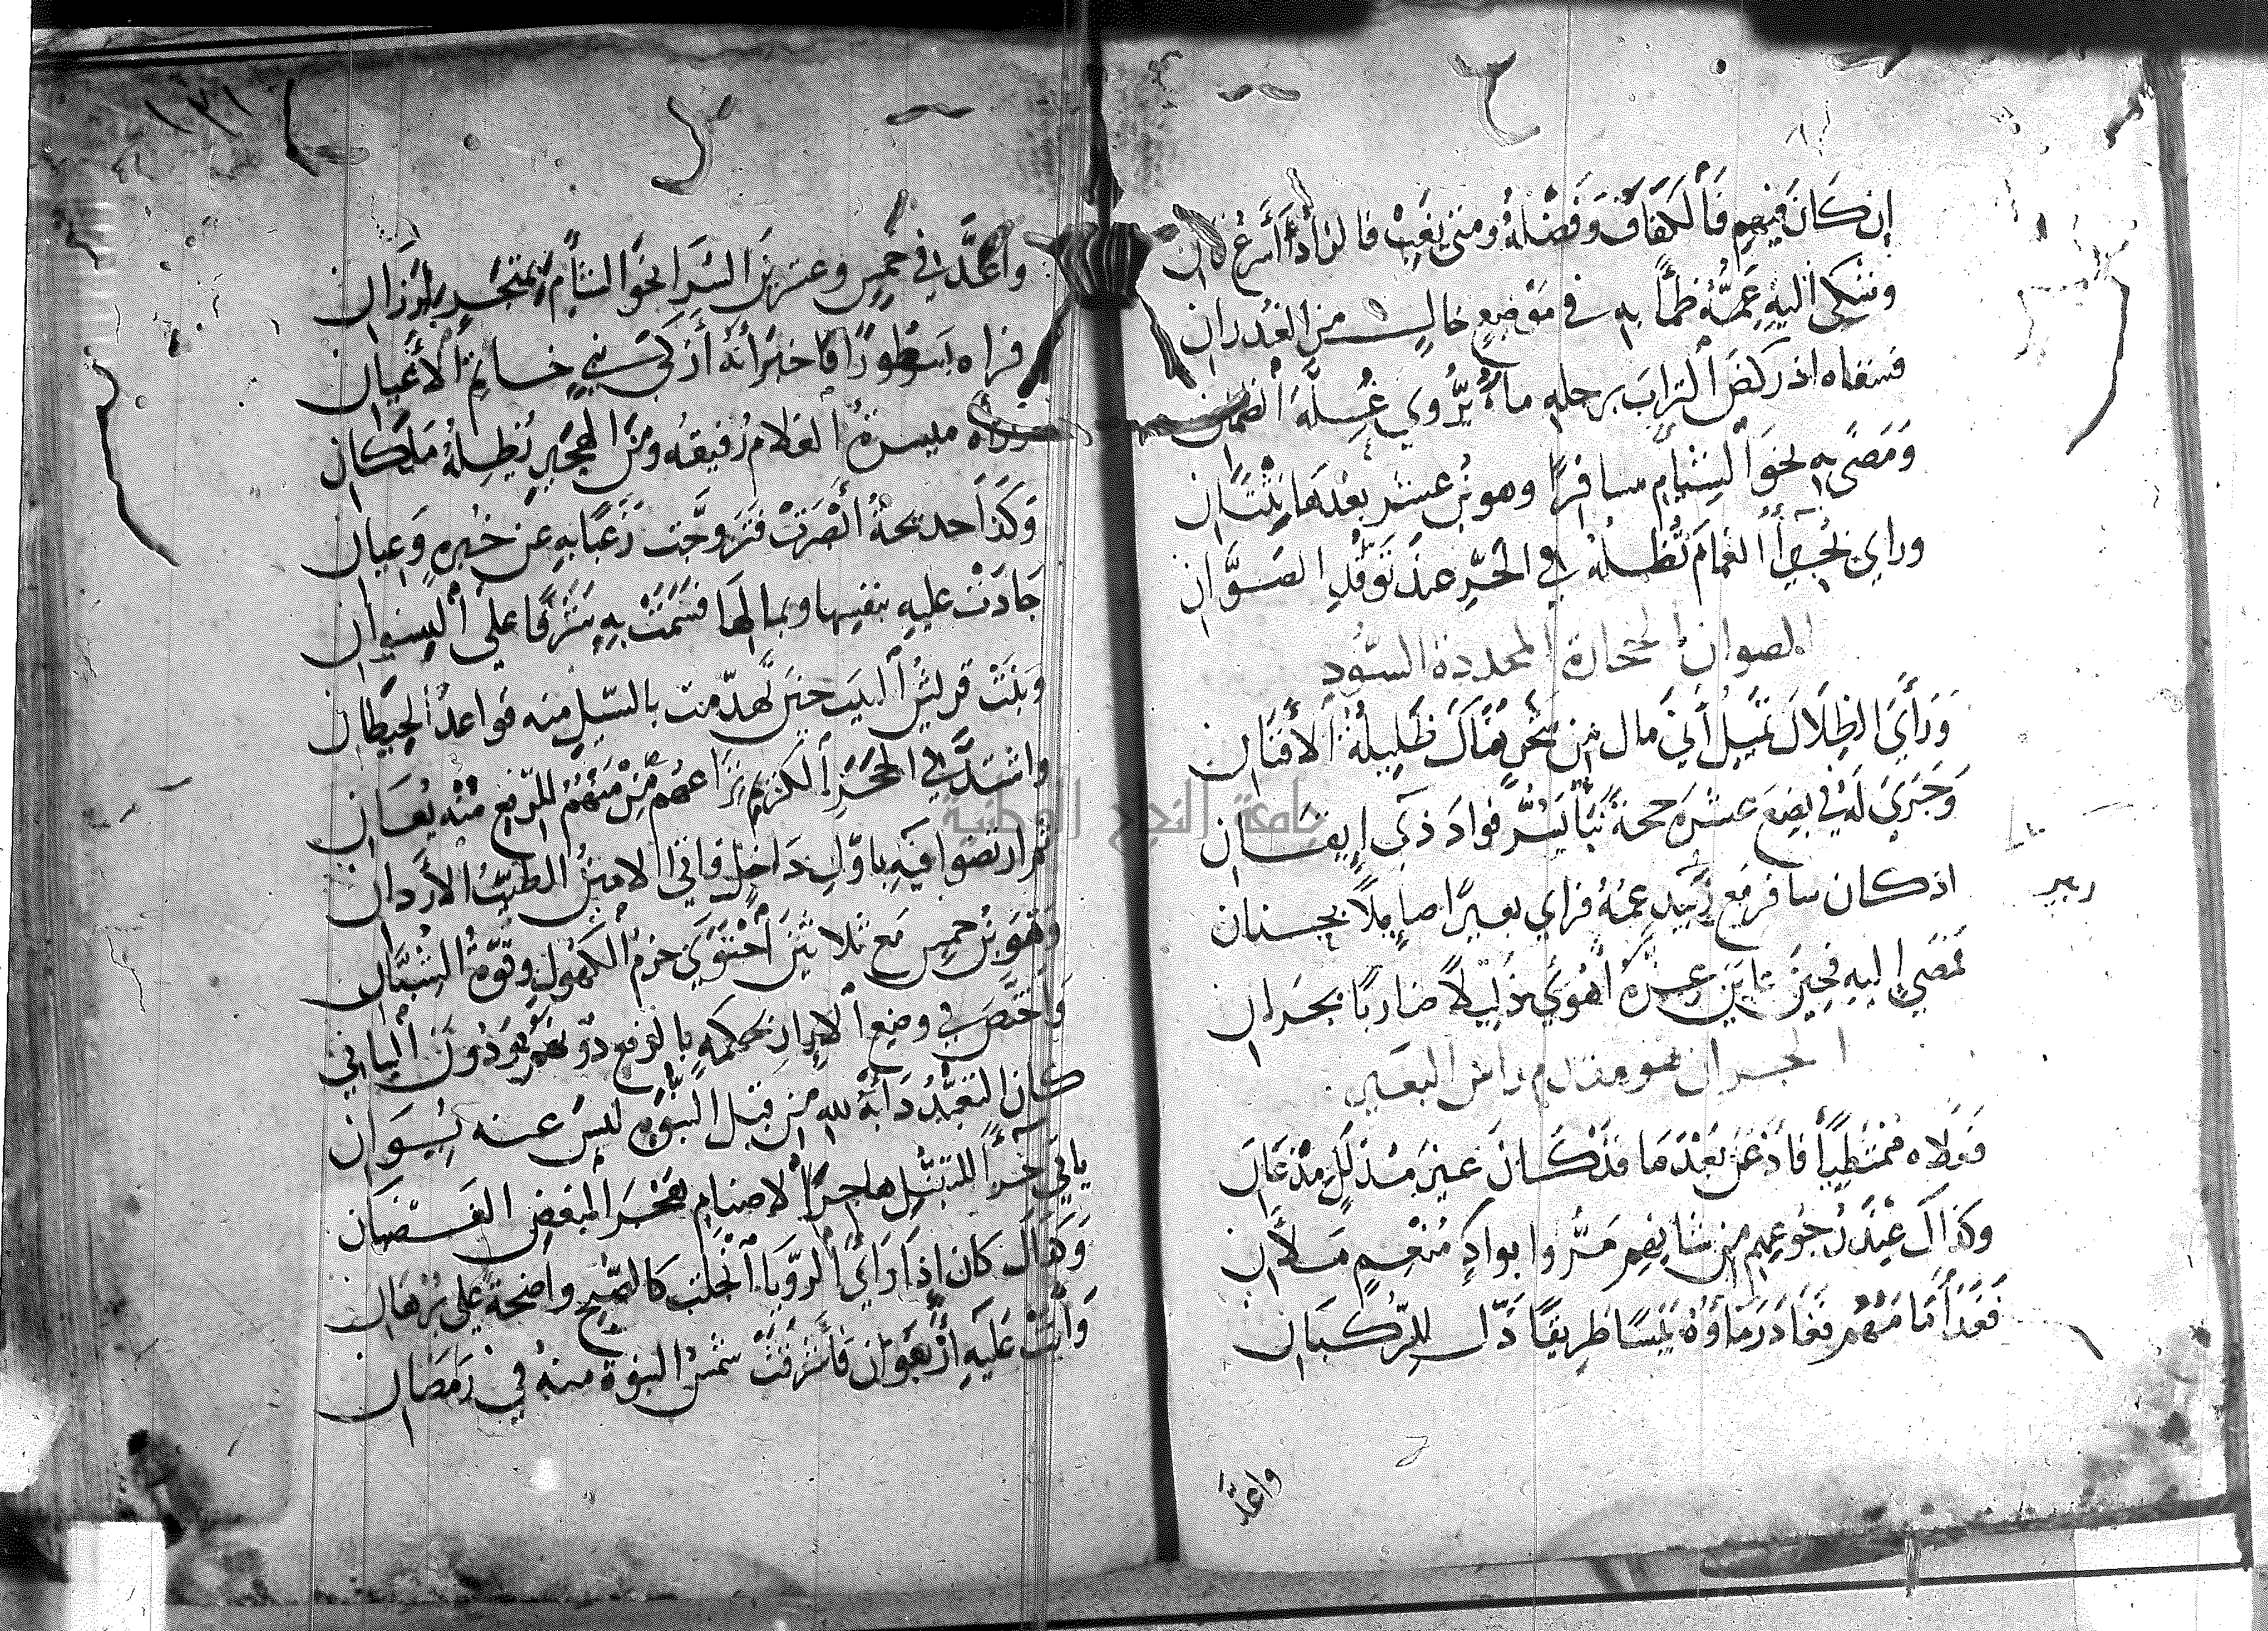 إن كان فيهم فالكفاف وفضله ومتى يغب فالزاد أسرع فان
وشكى اليه عمه ظمأ به في موضع خال من الغدران
فسقاه اذ ركض التراب برجله ماء يروي غلة الظمآن
ومضى به نحو الشآم مسافرا وهو بن عشر بعدها ثنتان
وراى بحيرا الغمام تظله في الحر عند توقد الصوان
الصوان الحجارة المحددة السود
ورأى الظلال تميل أنى مال من شجر هناك ظليلة الأفنان
وجرى له في بضع عشرة حجة نبأ يسر فواد ذي ايقان
اذ كان سافر مع زبيد عمه فراى بعيرا صايلا بجنان
زبير
فمضى اليه فحين عاين عزه أهوى ذليلا ضاربا بجران
الجران هو مقدم راس البعير
فعلاه ممتطيا فاذعن بعدما قد كان غير مذلل مذعان
وكذاك عند رجوعهم من شانهم مروا بواد مفعم ملآن
فغدا أمامهم فغادر ماؤه يبسا طريقا ذل للركبان
واعتد
١٣١
واعتد في خمس وعشرين السرا نحو الشآم بمتجر بأرزان
فرآه نسطورا فاخبر أنه أزكى نبي خاتم الأعيان
ورآه ميسرة الغلام رفيقه ومن الهجير يظله ملكان
وكذا خديجة أبصرت فتزوجت رغبا به عن خبره وعيان
جادت عليه بنفسها وبمالها فسمت به شرفا على النسوان
وبنت قريش البيت حين تهدمت بالسيل منه قواعد الحيطان
واشتد في الحجر الكريم نزاعهم من منهم للرفع منه يعان
ثم ارتضوا فيه باول داخل فاتى الامين الطيب الأردان
وهو بن خمس مع ثلاثين احتوى حزم الكهول وقوة الشبان
واختص في وضع الازار بحكمه بالرفع دونهم ودون الباني
كان التعبد دأبه لله من قبل النبوة ليس عنه بوان
يأتي حرا للتبتل هاجر الاصنام هجر المبغض الغضبان
وهناك كان إذا رأى الرؤيا انجلت كالصبح واضحة على برهان
وأتت عليه أربعون فأشرقت شمس النبوة منه في رمضان
جامعة النجاح الوطنية